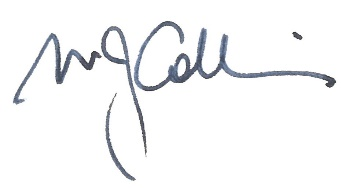 MJ Collins